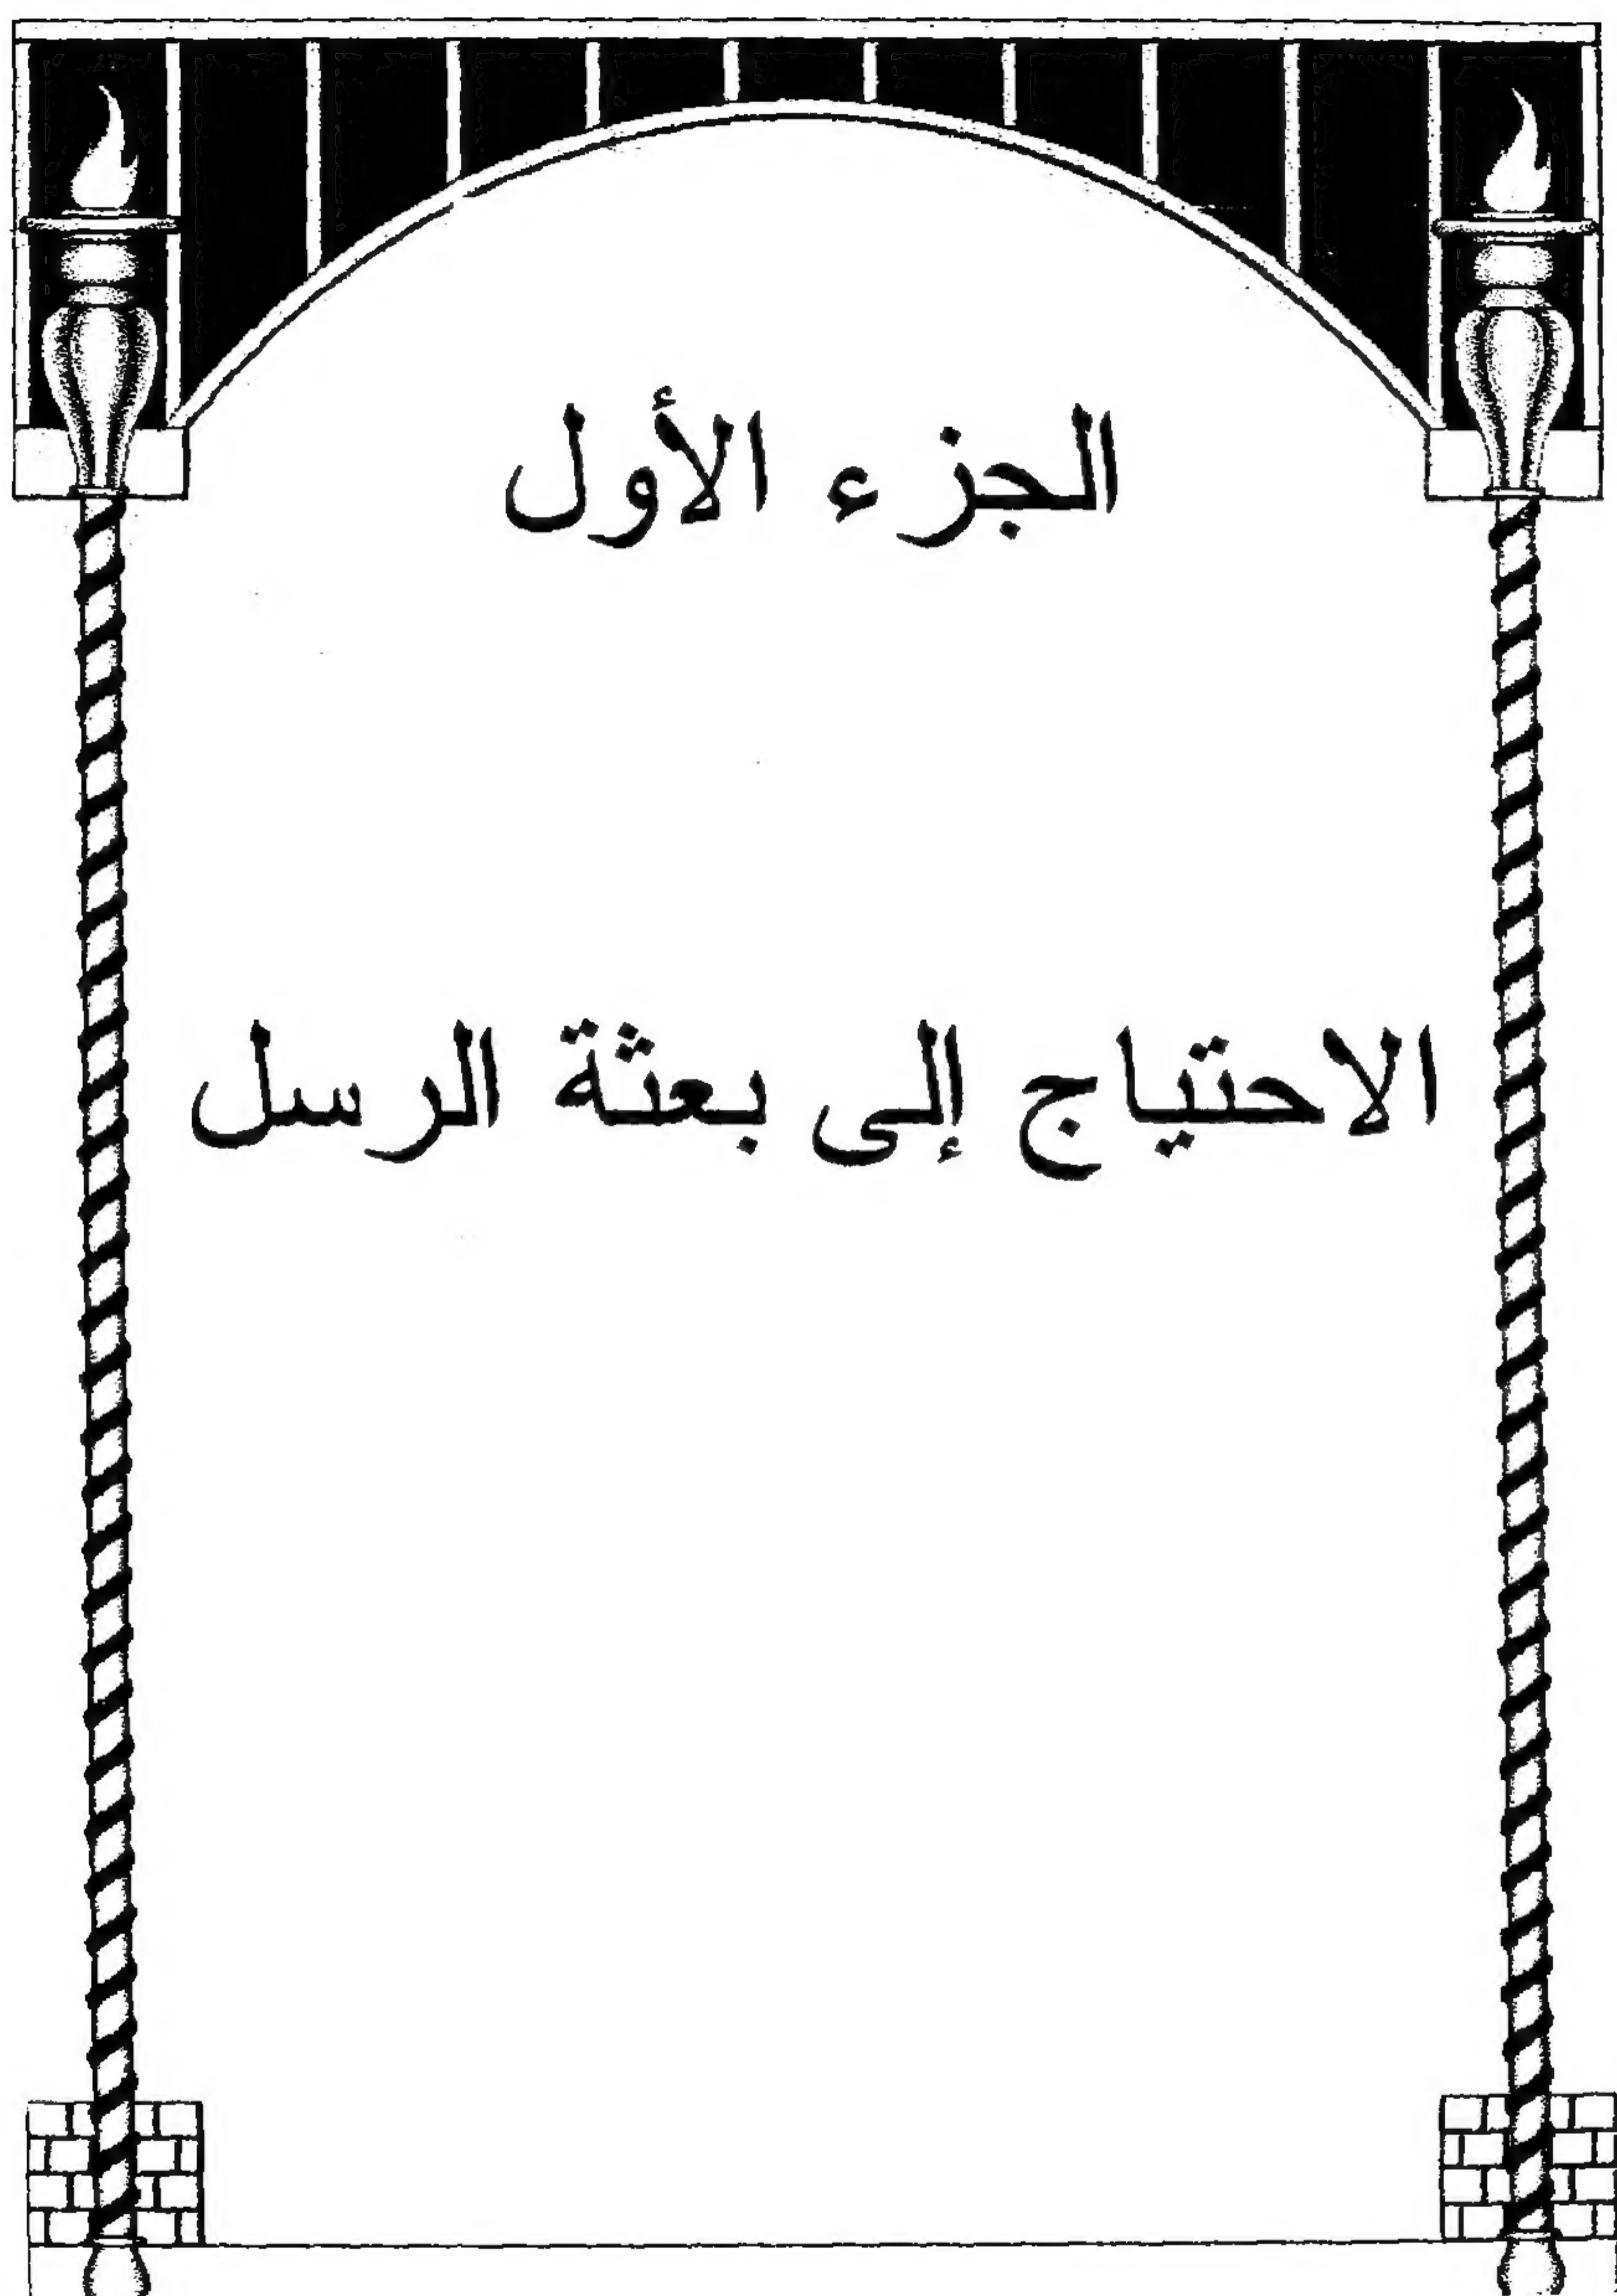 الجزء الأول
الاحتياج إلى بعثة الرسل